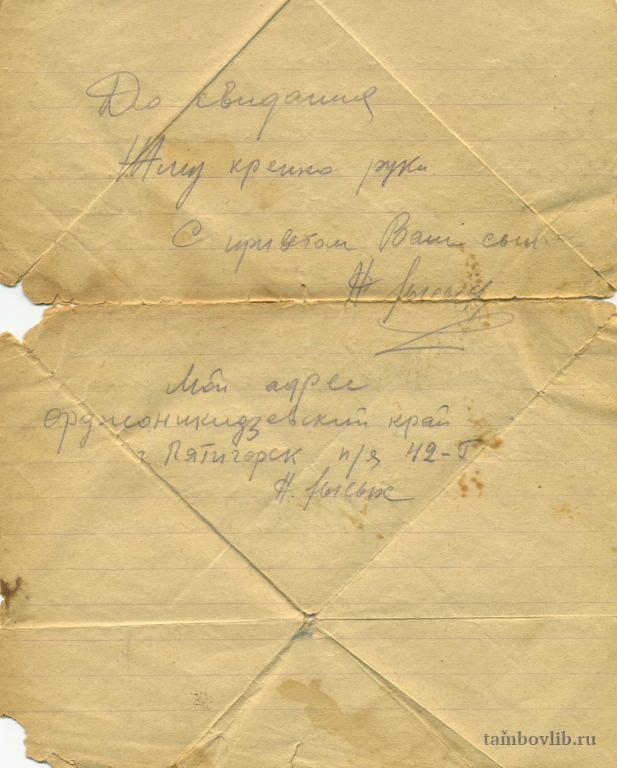 До свидания
Жму крепко руки
С приветом Ваш сын
Н Лысых
Мой адрес
орджоникидзевский край
г Пятигорск п/я 42-Г
Н. Лысых
tambovlib.ru